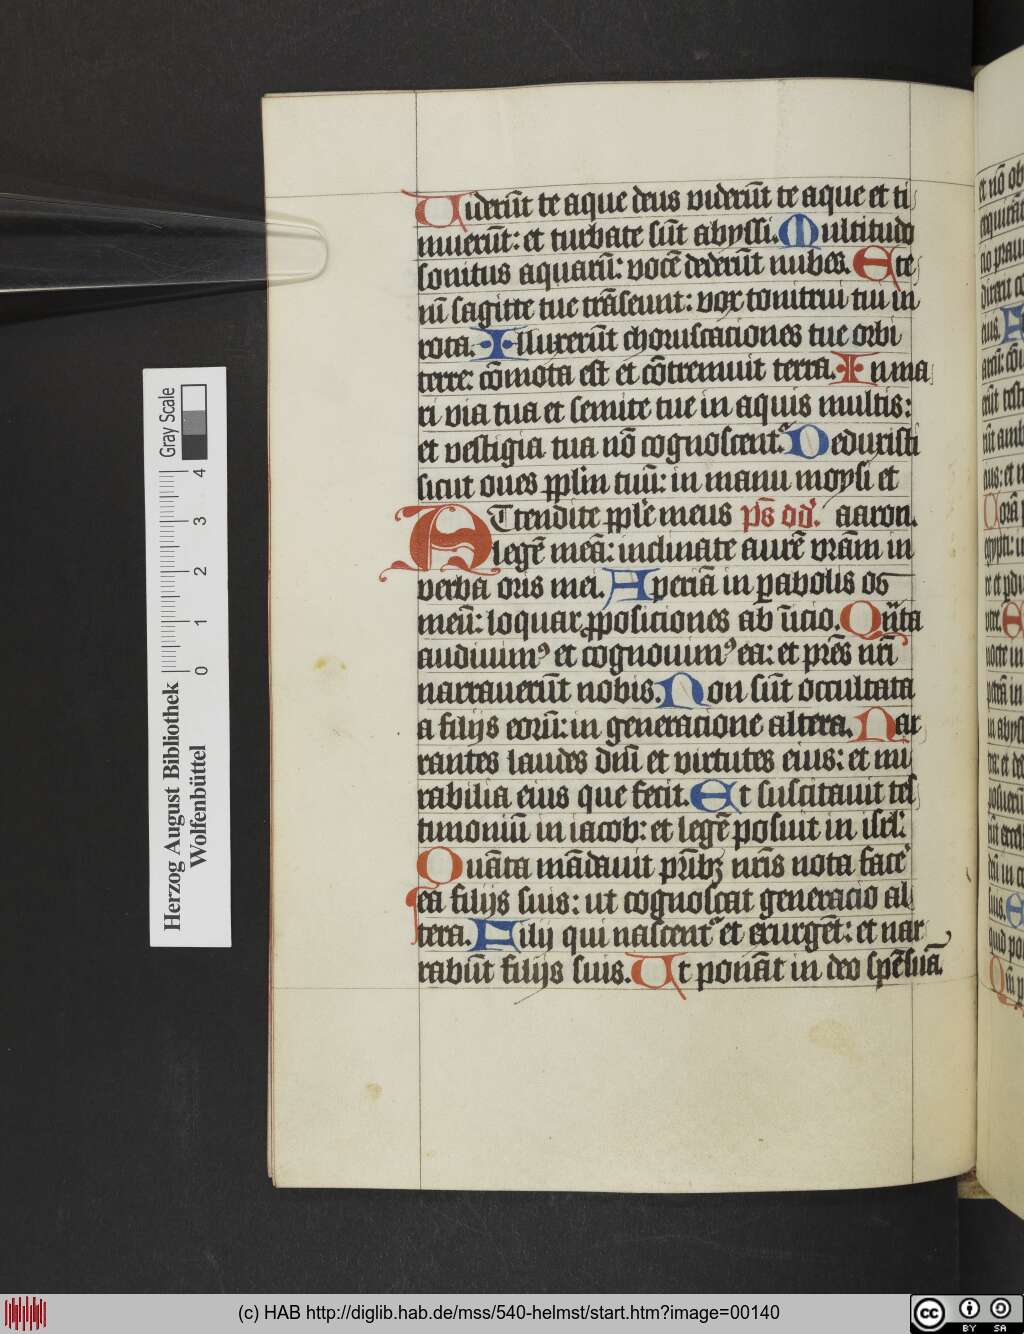 Uiderūt te aque deus viderūt te aque et ti
muerūt: et turbate sūt abyssi. Multitudo
sonitus aquarū: vocē dederūt nubes. Ete
nī sagitte tue trāseunt: vox tonitrui tui in
rota. Illuxerūt choruscaciones tue orbi
terre: cōmota est et cōtremuit terra. In ma
ri via tua et semite tue in aquis multis:
et vestigia tua nō cognoscent᷑. Deduxisti
sicut oues pplm̄ tuū: in manu moysi et
ATtendite pple meus ps̄ as̄. aaron.
legē meā: inclinate aurē vrām in
verba oris mei. Aperiā in pabolis os
meū: loquar pposiciones ab īicio. Qn̄ta
audiuimꝰ et cognouimꝰ ea: et prēs nrī
narrauerūt nobis. Non sūt occultata
a filijs eorū: in generacione altera. Nar
rantes laudes dn̄i et virtutes eius: et mi
rabilia eius que fecit. Et suscitauit tes
timoniū in iacob: et legē posuit in isrl̄.
Quāta mādauit pr̄ibꝫ nr̄is nota face᷑
ea filijs suis: ut cognoscat generacio al
tera. Filij qui nascent᷑ et exurgēt: et nar
rabūt filijs suis. Ut ponāt in deo spē suā.
Herzog August Bibliothek
Wolfenbüttel
0 1 2 3 4
Gray Scale
(c) HAB http://diglib.hab.de/mss/540-helmst/start.htm?image=00140
cc BY SA